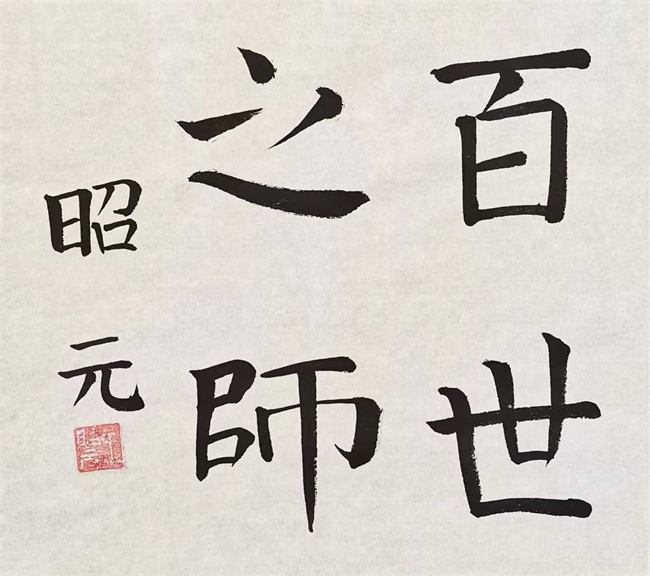 百世
之師
昭元